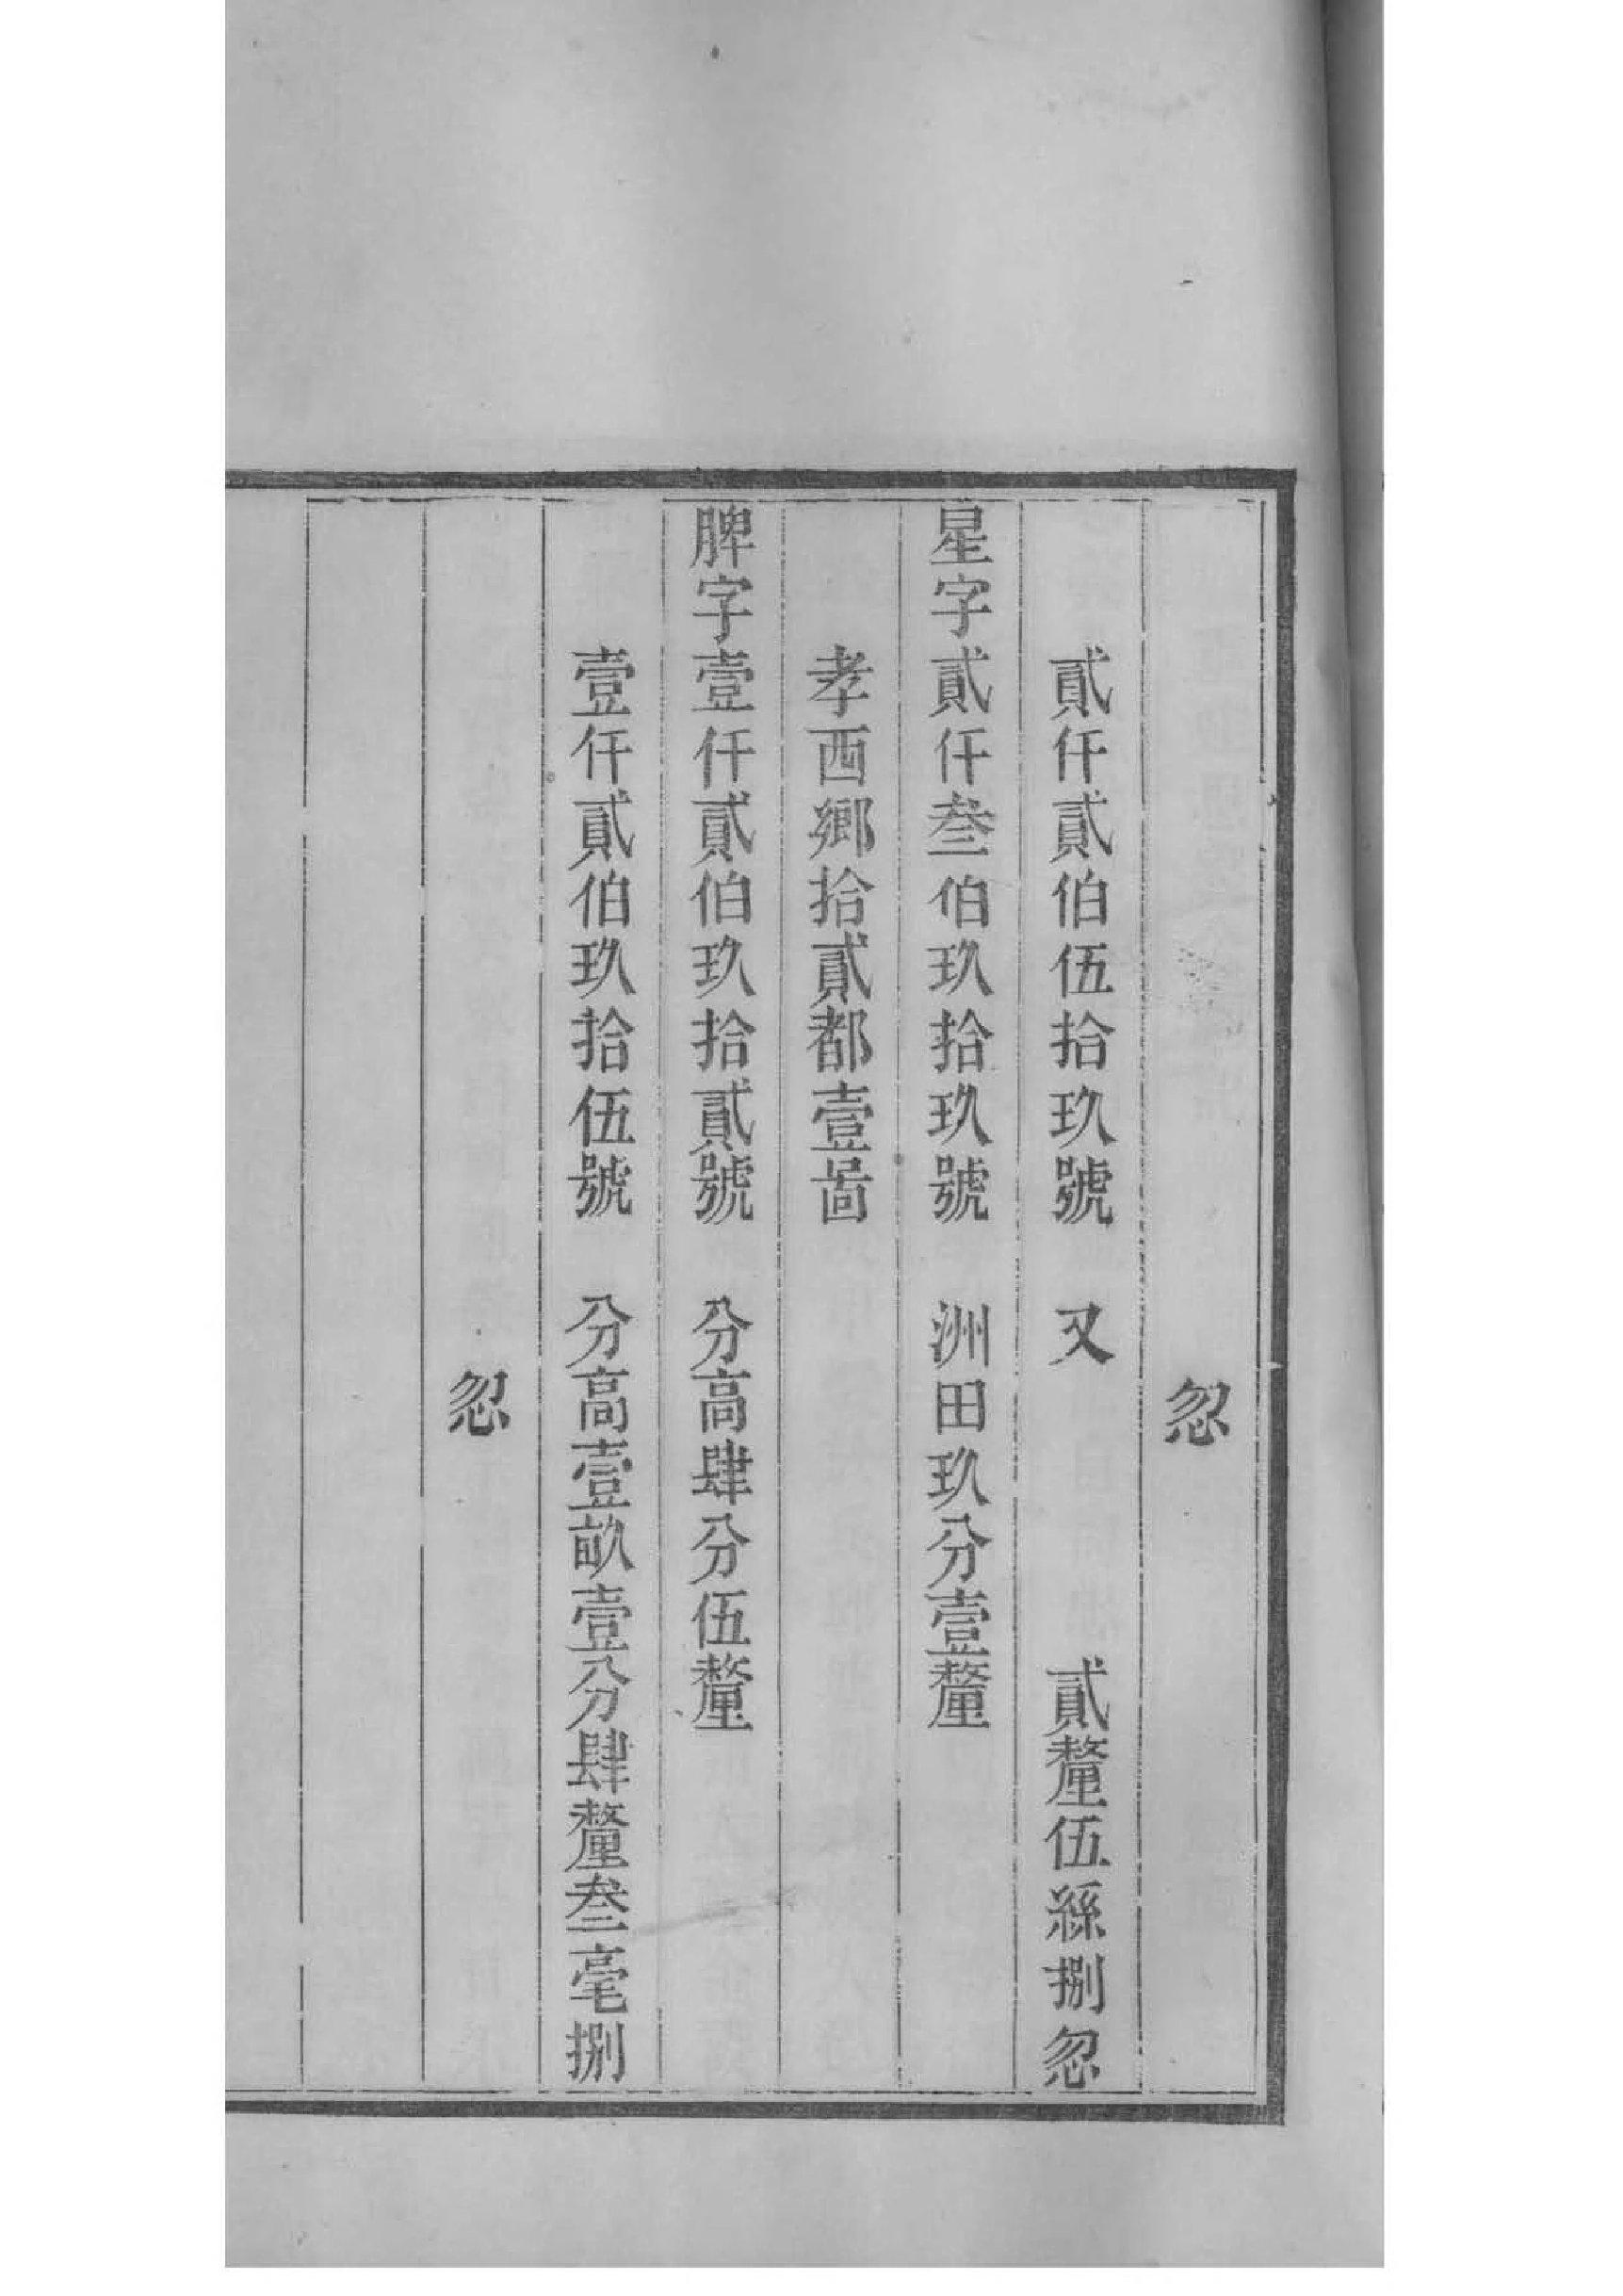 忽
貳仟貳伯伍拾玖號　又　　　　貳釐伍絲捌忽
星字貳仟叁伯玖拾玖號　洲田玖分壹釐
孝西鄉拾貳都壹啚
脾字壹仟貳伯玖拾貳號　分高肆分伍釐
壹仟貳伯玖拾伍號　分高壹畝壹分肆釐叁毫捌
忽